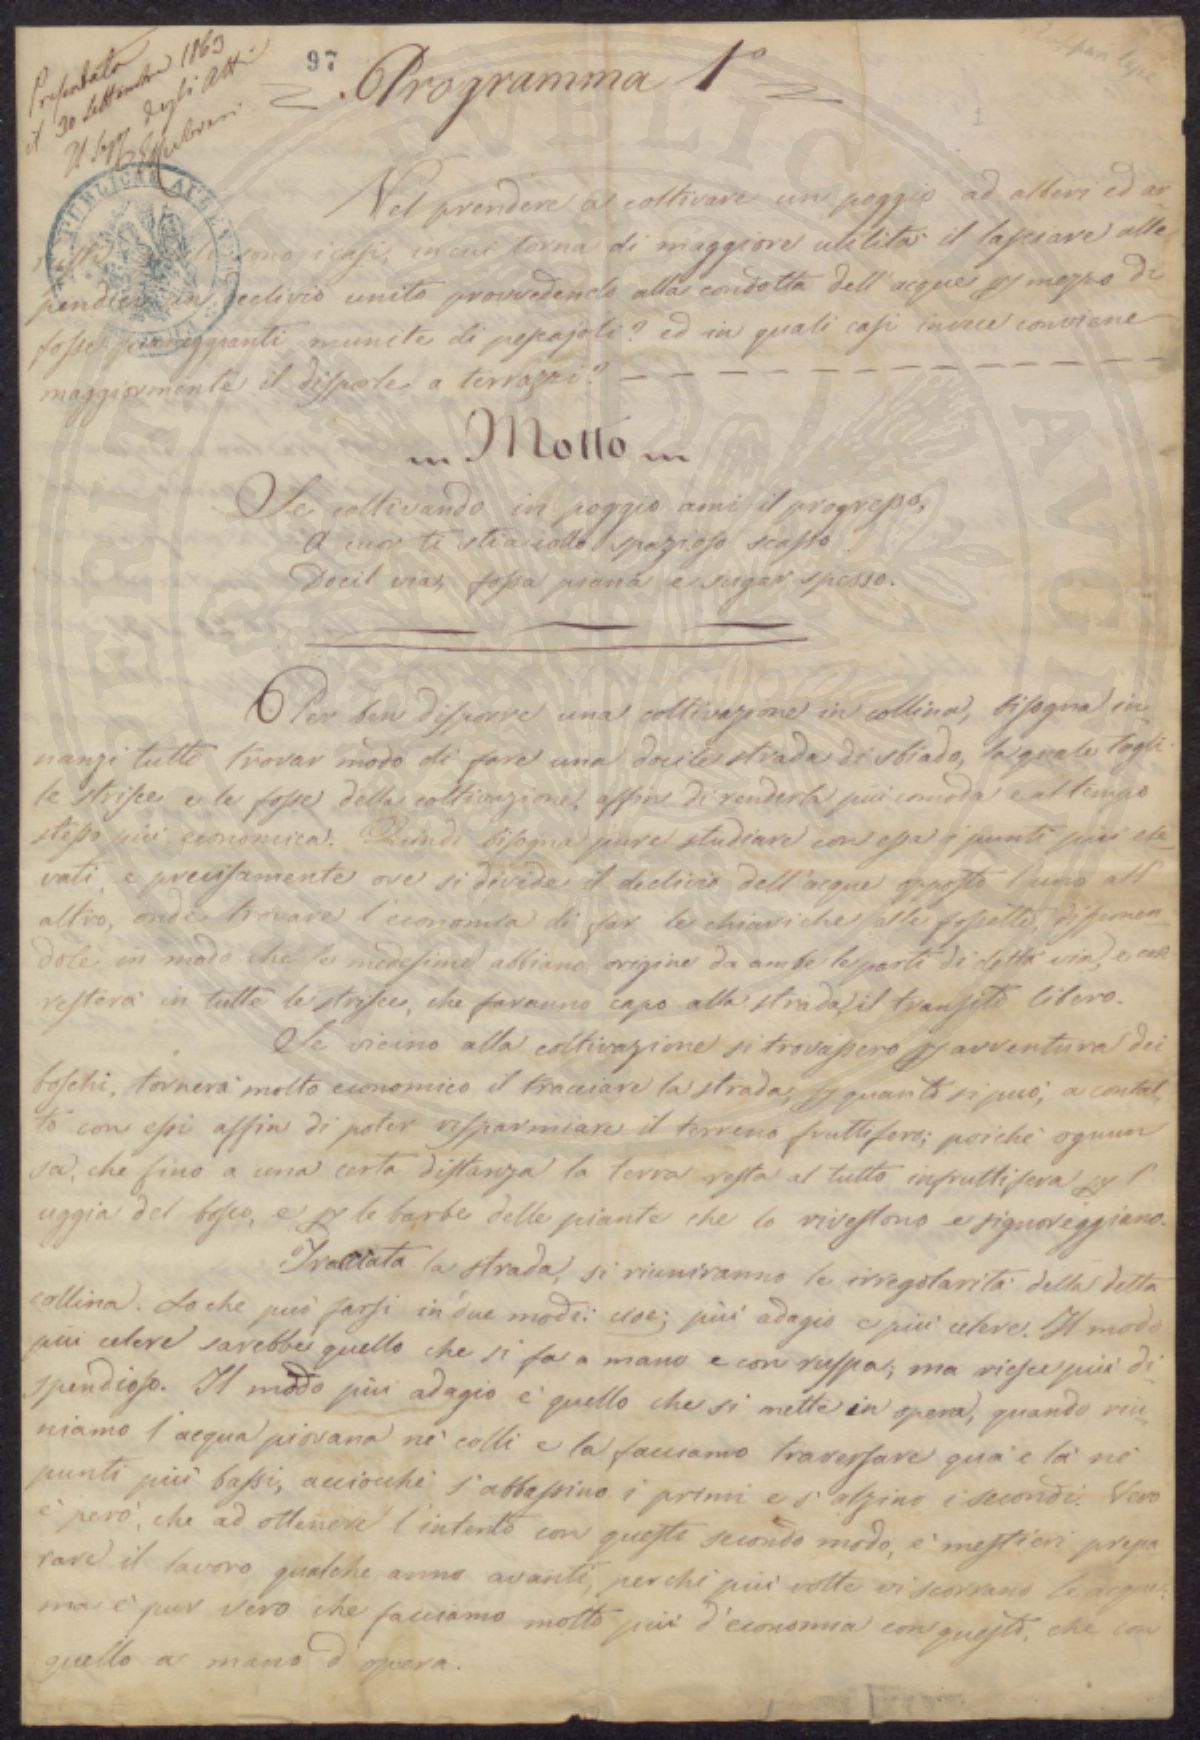 Presentata
il 30 Settembre 1863
Il Seg. degli Atti
97
Programma 1°
Nel prendere a coltivare un poggio ad alberi ed ar-
sono i casi, in cui torna di maggiore utilità il lasciare alle
pendici un declivio unito provvedendo alla condotta dell'acque p mezzo di
fosse pianeggianti munite di pescajoli? ed in quali casi invece conviene
maggiormente il disporle a terrazzi?
Motto
Se coltivando in poggio ami il progresso,
A cuor ti stia collo spazioso scasso
Docil via, fossa piana e sugar spesso.
Per ben disporre una coltivazione in collina, bisogna in-
nanzi tutto trovar modo di fare una docile strada di sbiado, la quale tagli
le strisce e le fosse della coltivazione, affin di renderla più comoda e al tempo
stesso più economica. Quindi bisogna pure studiare con essa i punti più ele-
vati, e precisamente ove si divide il declivio dell'acque opposto l'uno all'
altro, onde trovare l'economia di far le chiaviche alle fossette, disponen-
dole in modo che le medesime abbiano origine da ambe le parti di detta via, e così
resterà in tutte le strisce, che faranno capo alla strada, il transito libero.
Se vicino alla coltivazione si trovassero p avventura dei
boschi, tornerà molto economico il tracciare la strada, p quanto si può, a contat-
to con essi affin di poter risparmiare il terreno fruttifero; poichè ognun
sa, che fino a una certa distanza la terra resta al tutto infruttifera p l'
uggia del bosco, e p le barbe delle piante che lo rivestono e signoreggiano.
Tracciata la strada, si riuniranno le irregolarità della detta
collina. Lo che può farsi in due modi: cioè; più adagio e più celere. Il modo
più celere sarebbe quello che si fa a mano e con ruspa; ma riesce più di-
spendioso. Il modo più adagio è quello che si mette in opera, quando riu-
niamo l'acqua piovana nè colli e la facciamo traversare quà e là nè
punti più bassi, acciocchè s'abbassino i primi e s'alzino i secondi. Vero
è però, che ad ottenere l'intento con questo secondo modo, è mestieri prepa-
rare il lavoro qualche anno avanti, perchè più volte vi scorrano le acque:
ma è pur vero che facciamo molto più d'economia con questo, che con
quello a mano d'opera.